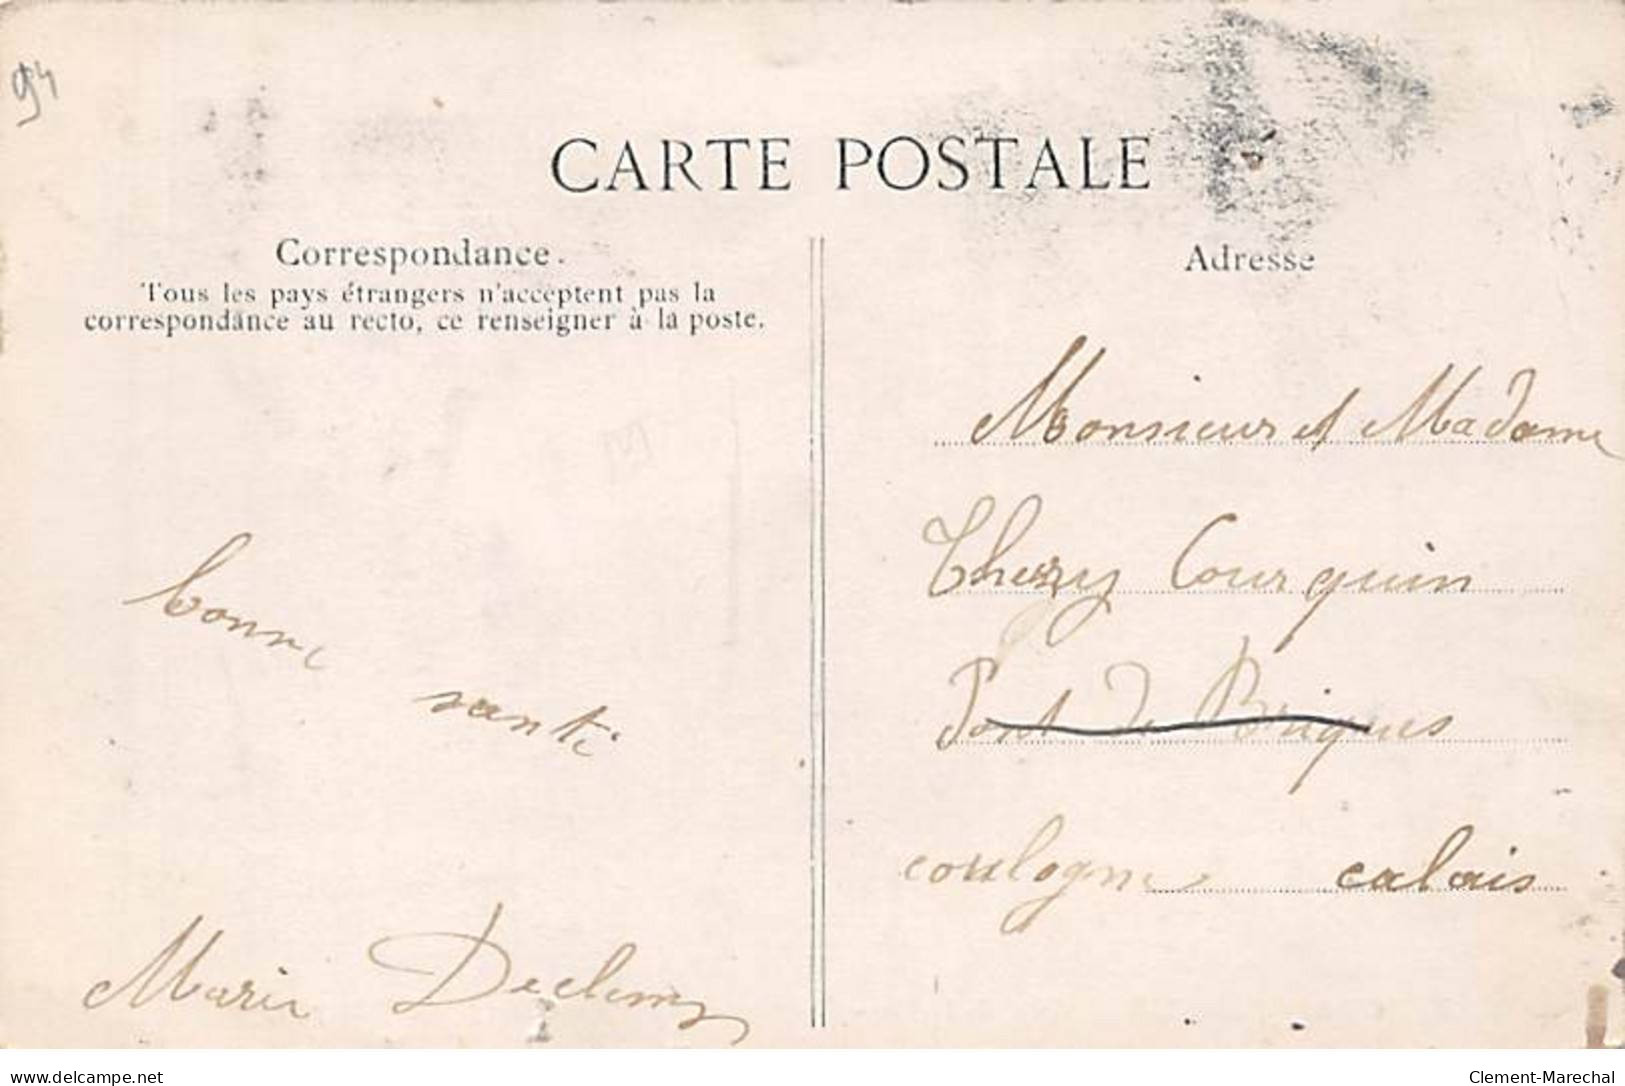 94
CARTE POSTALE
Correspondance.
Tous les pays étrangers n'acceptent pas la
correspondance au recto, ce renseigner à la poste.
bonne
santé
Marie
Adresse
Monsieur et Madame
Thery Courquin
Pont de Briques
coulogne calais
Clement-Marechal